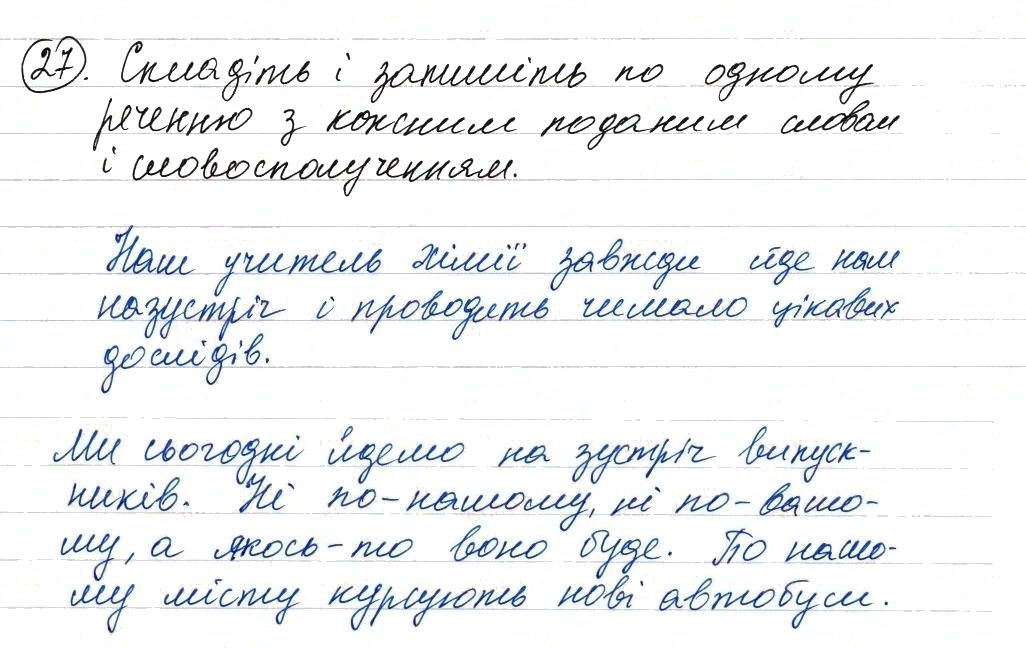 27. Складіть і запишіть по одному
реченню з кожним поданим словом
і словосполученням.
Наш учитель хімії завжди йде нам
назустріч і проводить чимало цікавих
дослідів.
Ми сьогодні йдемо на зустріч випуск-
ників. Ні по-нашому, ні по-вашо-
му, а якось-то воно буде. По нашо-
му місту курсують нові автобуси.